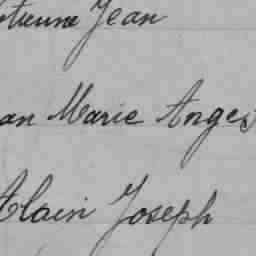 Etienne Jean
Jean Marie Anges
Alain Joseph